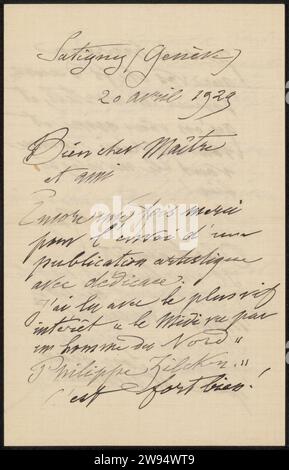 Satigny (Genève)
20 avril 1929
Bien cher Maître
et ami
Encore une fois merci
pour l'envoi d'une
publication artistique
avec dédicace.
J'ai lu avec le plus vif
intérêt « le Midi vu par
un homme du Nord »
Philippe Zilcken."
C'est fort bien!
alamy
Image ID: 2W94WT9
www.alamy.com